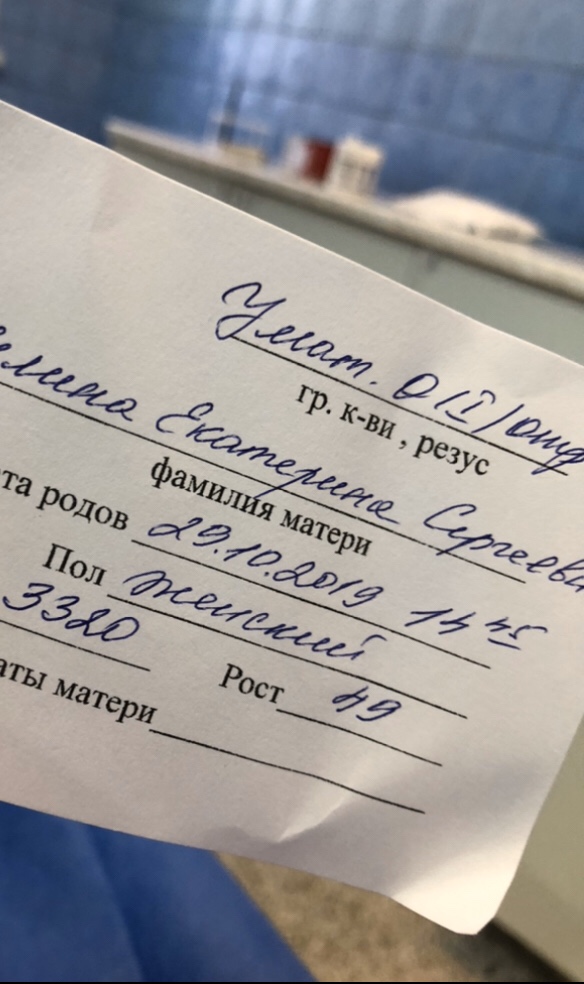 У мат. О(I) отр
гр. к-ви , резус
лина Екатерина Сергеев
фамилия матери
та родов 29.10.2019 14 45
Пол женский
3320 Рост 49
аты матери